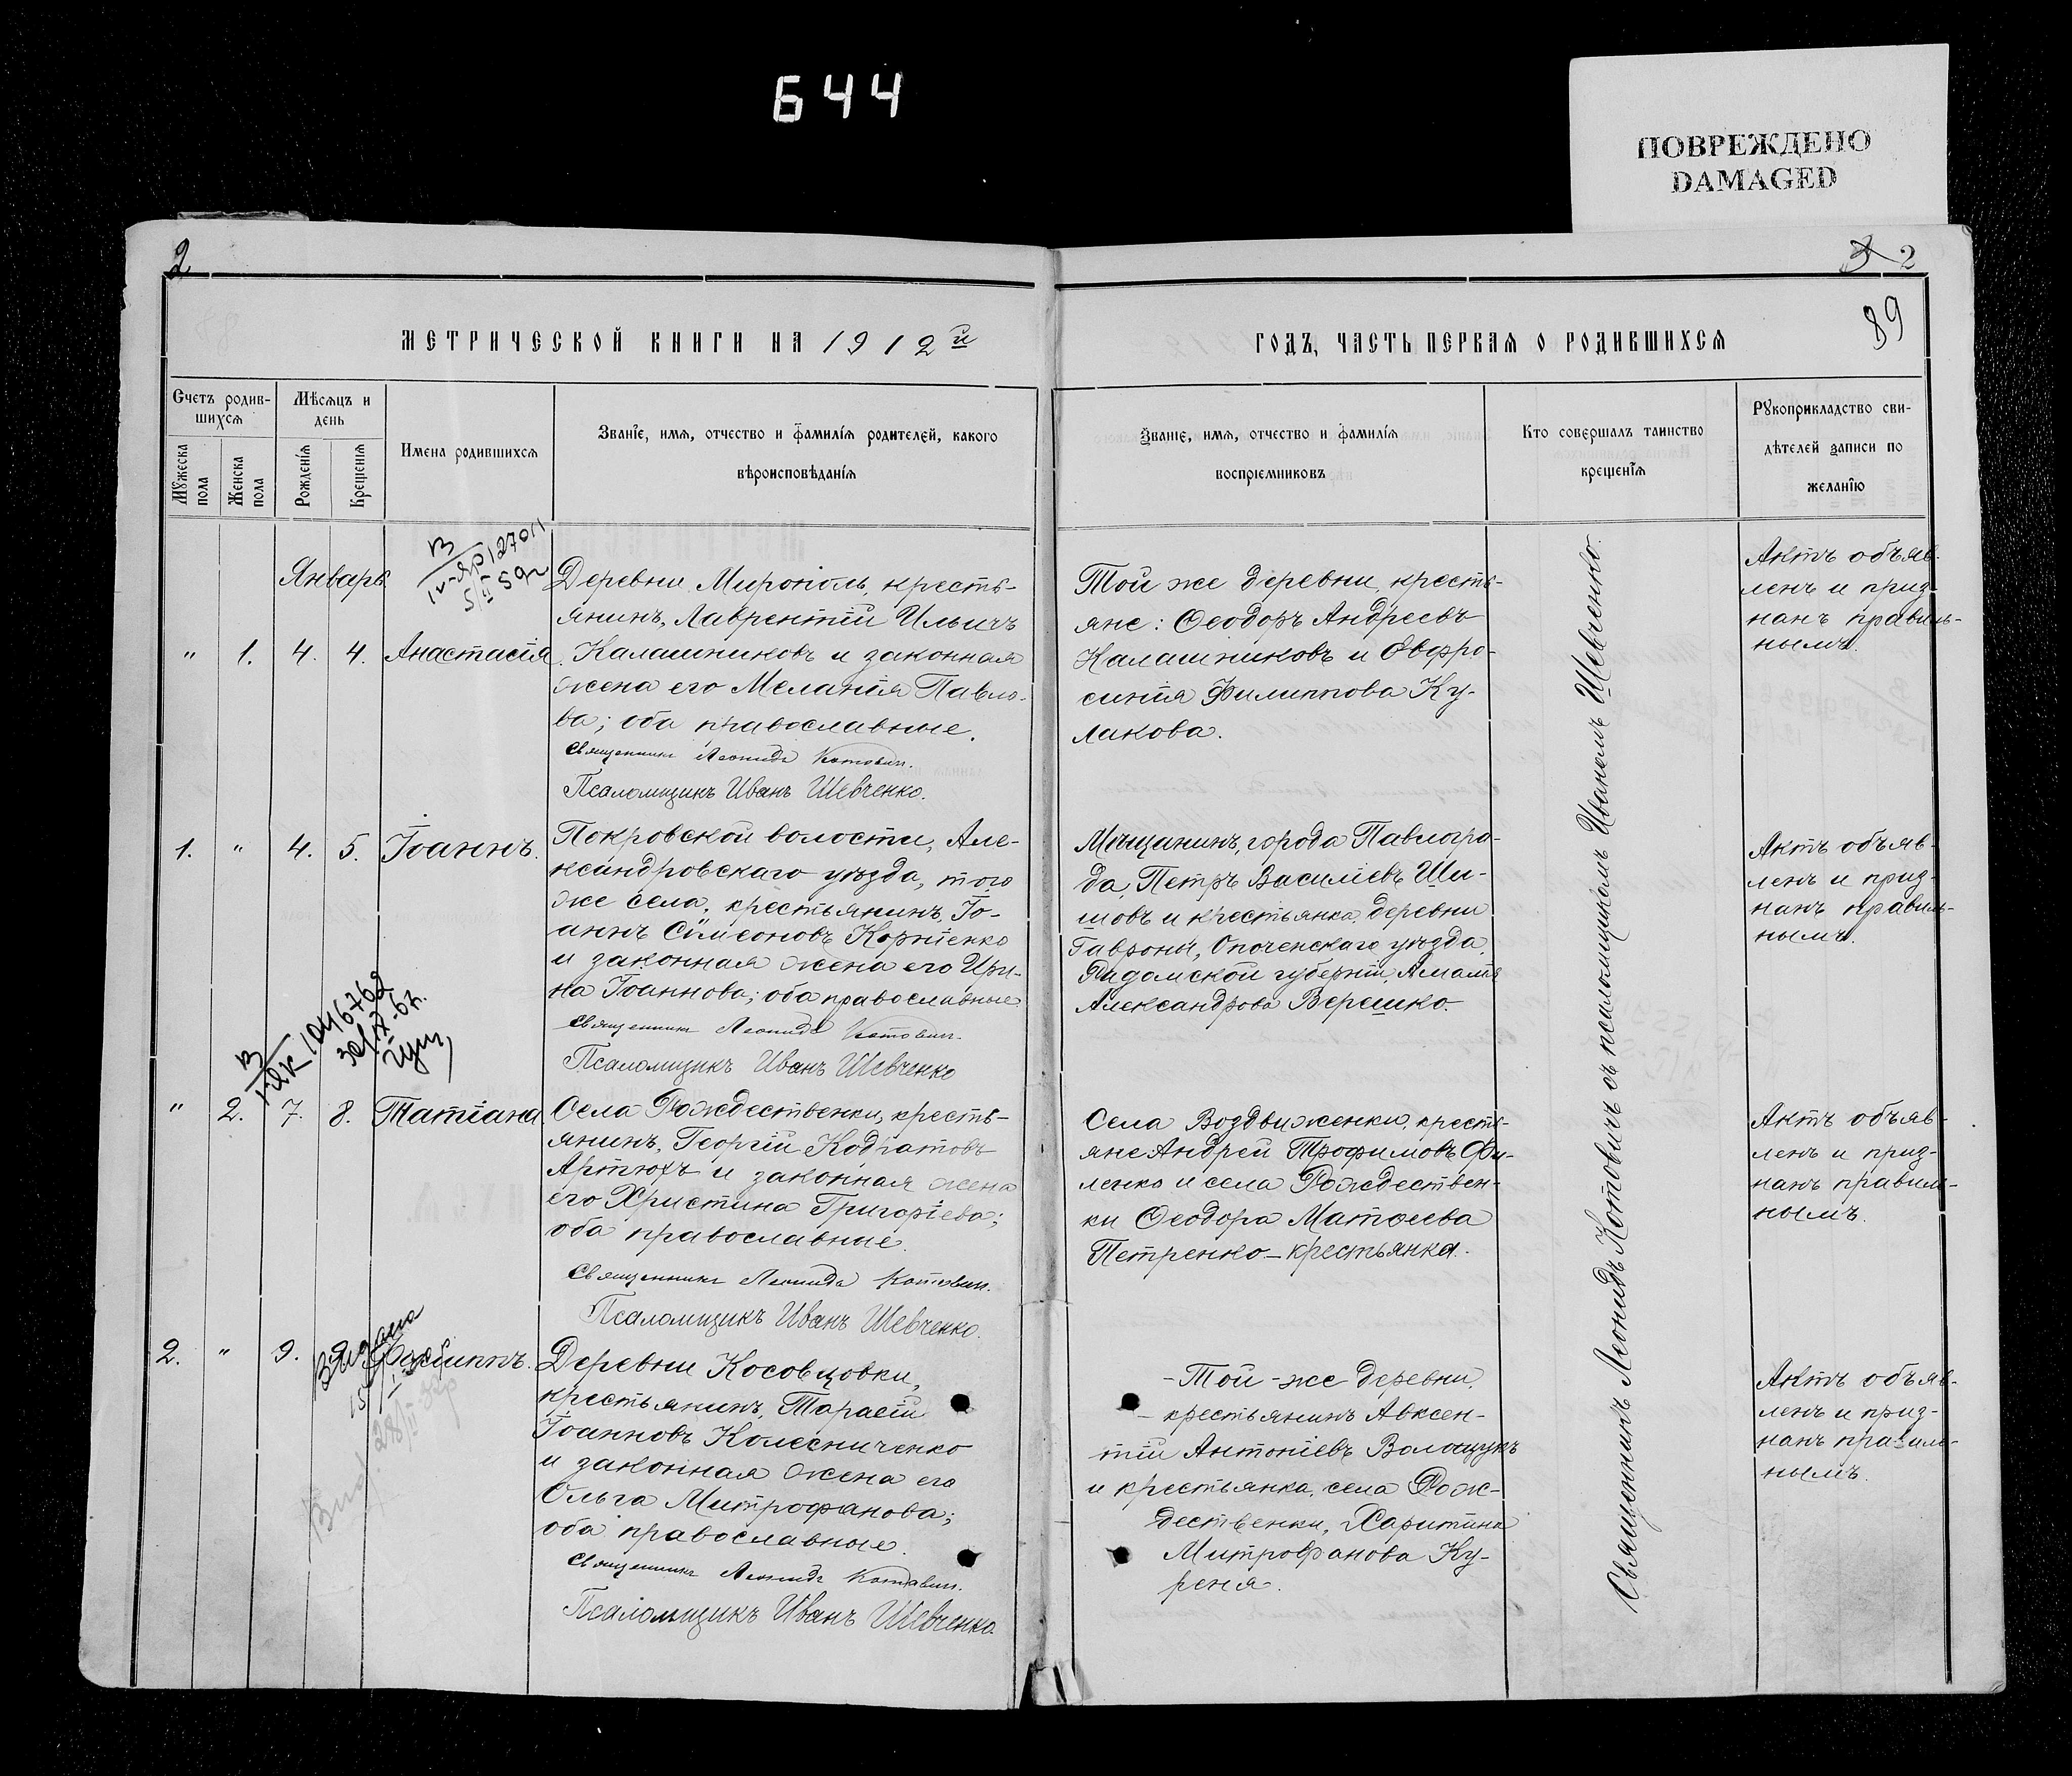 644
ПОВРЕЖДЕНО
DAMAGED
2
3 2
89
МЕТРИЧЕСКОЙ КНИГИ НА 1912й
ГОДЪ, ЧАСТЬ ПЕРВАЯ О РОДИВШИХСЯ
Счетъ родив-
шихся
Мужеска
пола
Женска
пола
Мѣсяцъ и
день
Рожденія
Крещенія
Имена родившихся
Званіе, имя, отчество и фамилія родителей, какого
вѣроисповѣданія
Званіе, имя, отчество и фамилія
воспріемниковъ
Кто совершалъ таинство
крещенія
Рукоприкладство сви-
дѣтелей записи по
желанію
Январь
" 1. 4. 4. Анастасія.
Деревни Мирополь, кресть-
янинъ, Лаврентій Ильичъ
Калашниковъ и законная
жена его Меланія Павло-
ва; оба православные.
Священникъ Леонидъ Котовичъ.
Псаломщикъ Иванъ Шевченко.
Той же деревни, кресть-
яне: Ѳеодоръ Андреевъ
Калашниковъ и Евфро-
синія Филиппова Ку-
лакова.
Актъ объяв-
ленъ и приз-
нанъ правиль-
нымъ.
1. " 4. 5. Іоаннъ.
Покровской волости, Але-
ксандровскаго уѣзда, того
же села, крестьянинъ, Іо-
аннъ Сімеоновъ Корніенко
и законная жена его Ири-
на Іоаннова; оба православные
Священникъ Леонидъ Котовичъ.
Псаломщикъ Иванъ Шевченко
Мѣщанинъ, города Павлогра-
да, Петръ Василіевъ Ши-
шовъ и крестьянка, деревни
Гавроны, Опоченскаго уѣзда,
Радомской губерніи, Амалія
Александрова Верешко.
Актъ объяв-
ленъ и приз-
нанъ правиль-
нымъ.
" 2. 7. 8. Татіана.
Села Рождественки, кресть-
янинъ, Георгій Кодратовъ
Артюхъ и законная жена
его Христина Григоріева;
оба православные.
Священникъ Леонидъ Котовичъ.
Псаломщикъ Иванъ Шевченко.
Села Воздвиженки, кресть-
яне Андрей Трофимовъ Фи-
ленко и села Рождествен-
ки Ѳеодора Матѳеева
Петренко - крестьянка.
Актъ объяв-
ленъ и приз-
нанъ правиль-
нымъ.
2. " 9. 9. Филиппъ.
Деревни Косовцовки,
крестьянинъ, Тарасій
Іоанновъ Колесниченко
и законная жена его
Ольга Митрофанова;
оба православные.
Священникъ Леонидъ Котовичъ.
Псаломщикъ Иванъ Шевченко.
- Той-же деревни,
- крестьянинъ Авксен-
тій Антоніевъ Волощукъ
и крестьянка, села Рож-
дественки, Харитина
Митрофанова Ку-
реня.
Актъ объяв-
ленъ и приз-
нанъ правиль-
нымъ.
Священникъ Леонидъ Котовичъ съ псаломщикомъ Иваномъ Шевченко.